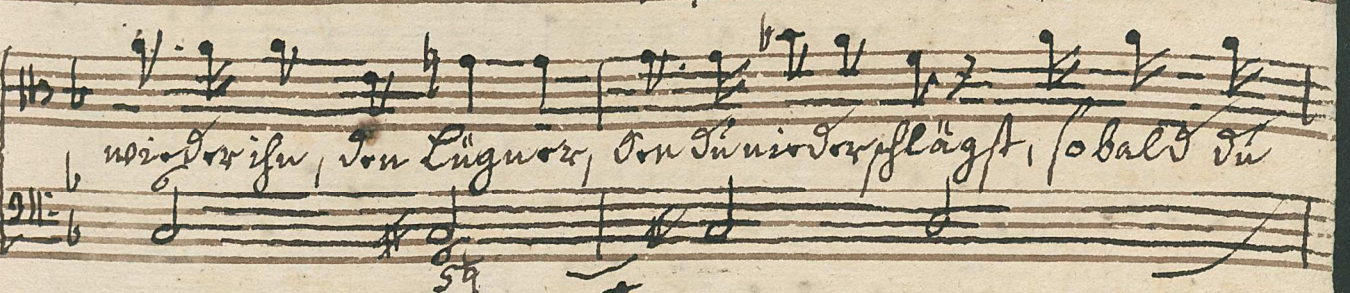 wieder ihn, den Lügner, den du niederschlägst, so bald du
6
6
5♮